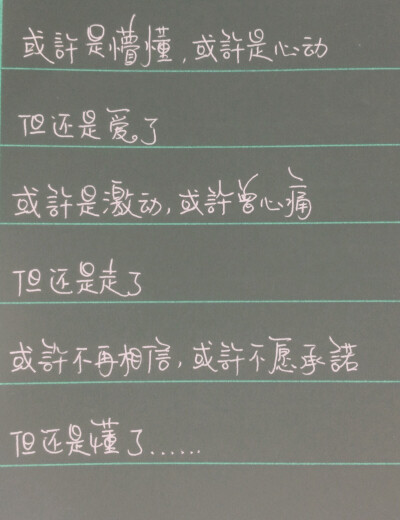 或許是懵懂，或許是心动
但还是爱了
或許是激动，或許曾心痛
但还是走了
或許不再相信，或許不愿承諾
但还是懂了……